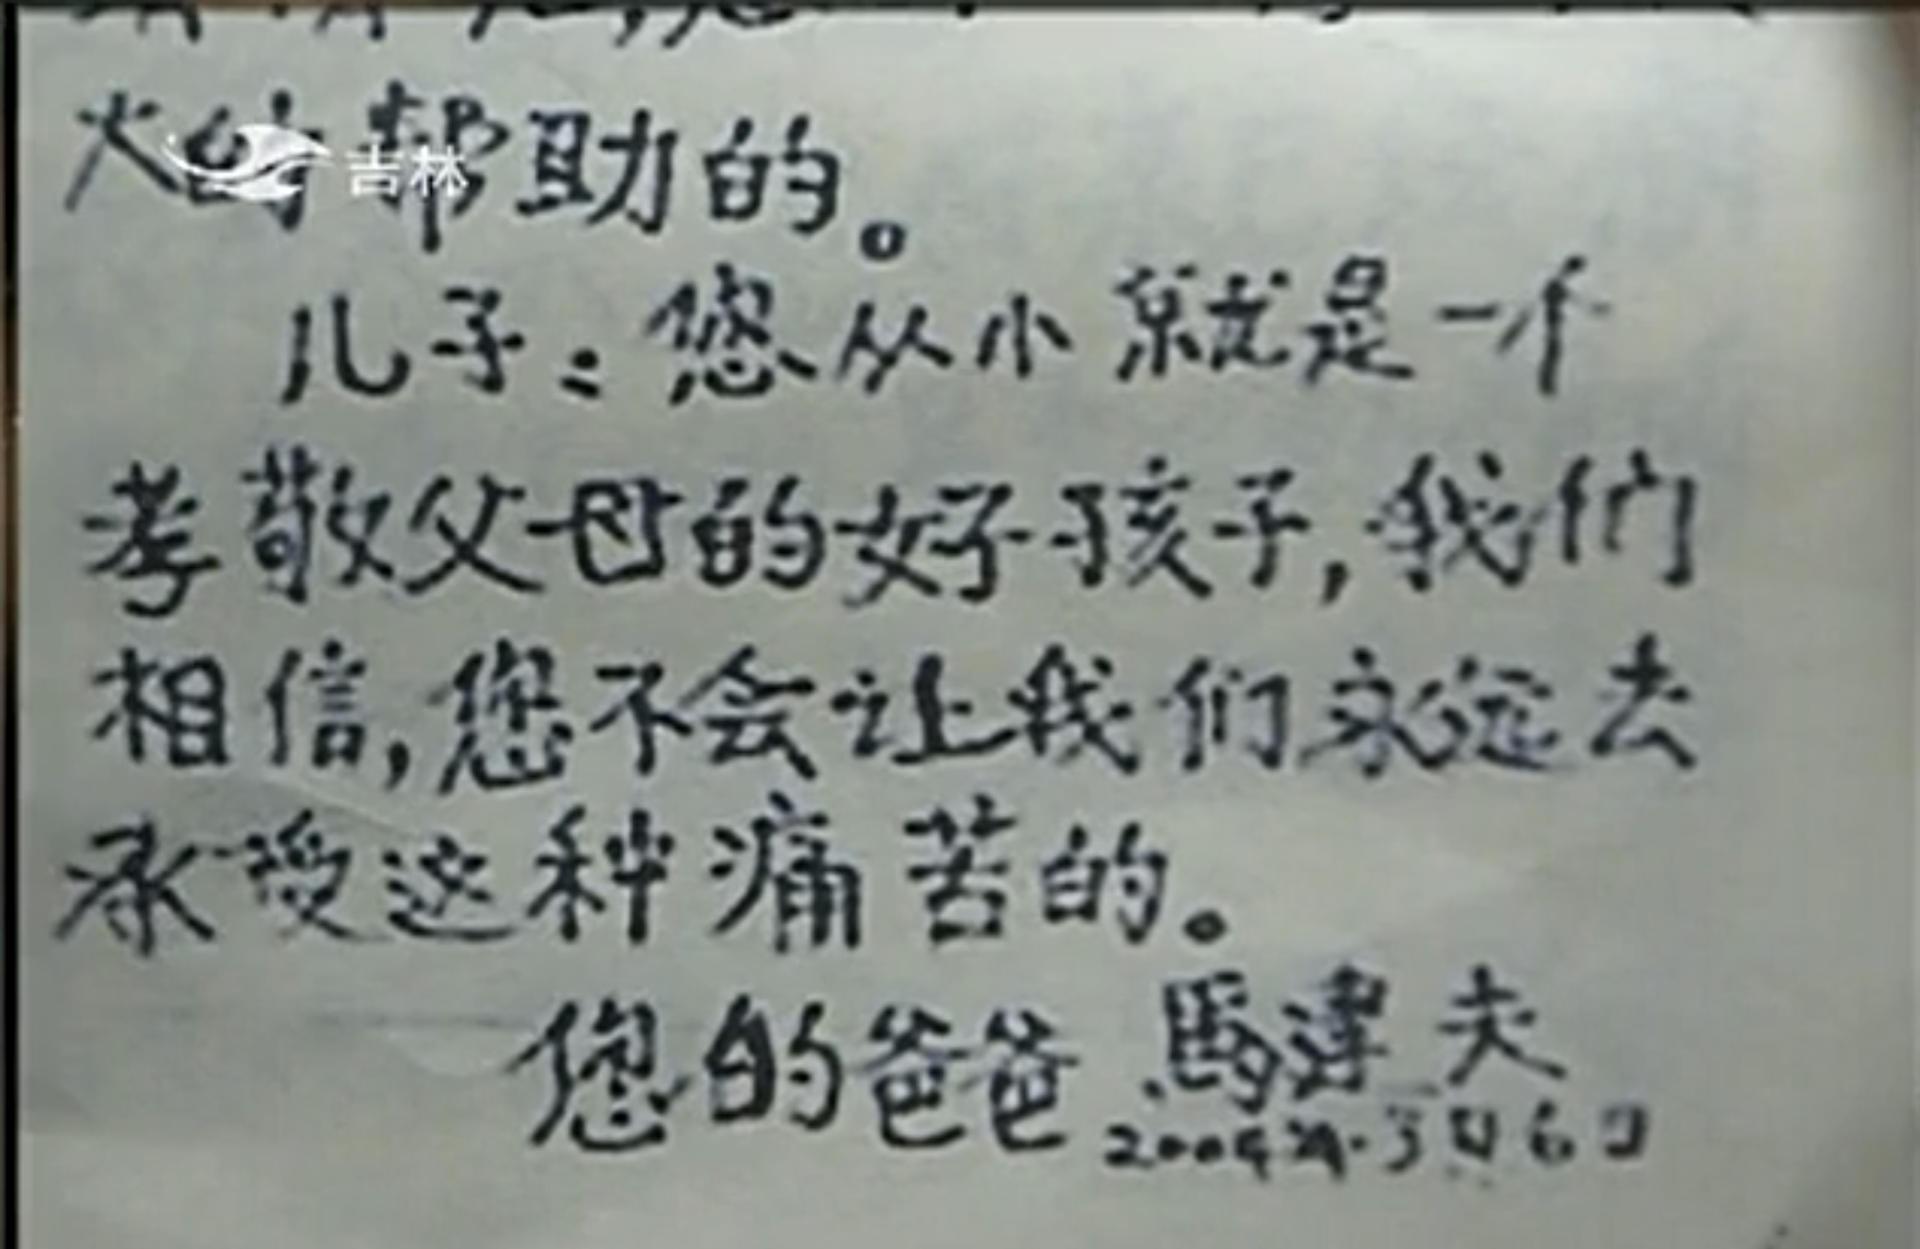 大的帮助的。
吉林
儿子：您从小就是一个
孝敬父母的好孩子,我们
相信,您不会让我们永远去
承受这种痛苦的。
您的爸爸 馬津夫
3月6日